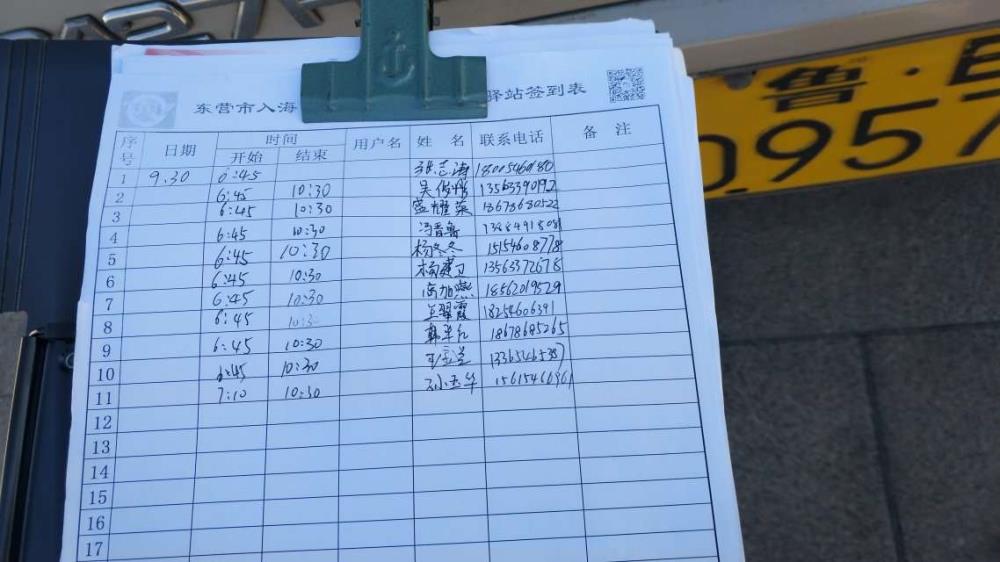 东营市入海 驿站签到表
序号 日期 时间 用户名 姓 名 联系电话 备 注
开始 结束
1 9.30 6:45 张志涛 18005460180
2 6:45 10:30 吴俊彤 13563390192
3 6:45 10:30 盛耀荣 18678680522
4 6:45 10:30 冯晋鲁
5 6:45 10:30 杨冬冬 15154608778
6 6:45 10:30 杨建卫 13563372678
7 6:45 10:30 高旭燕 18562019529
8 6:45 10:30 王翠霞 18254606391
9 6:45 10:30 韩军红 18678685265
10 6:45 10:30
11 7:10 10:30 孙玉华
12
13
14
15
16
17
鲁·E
0957